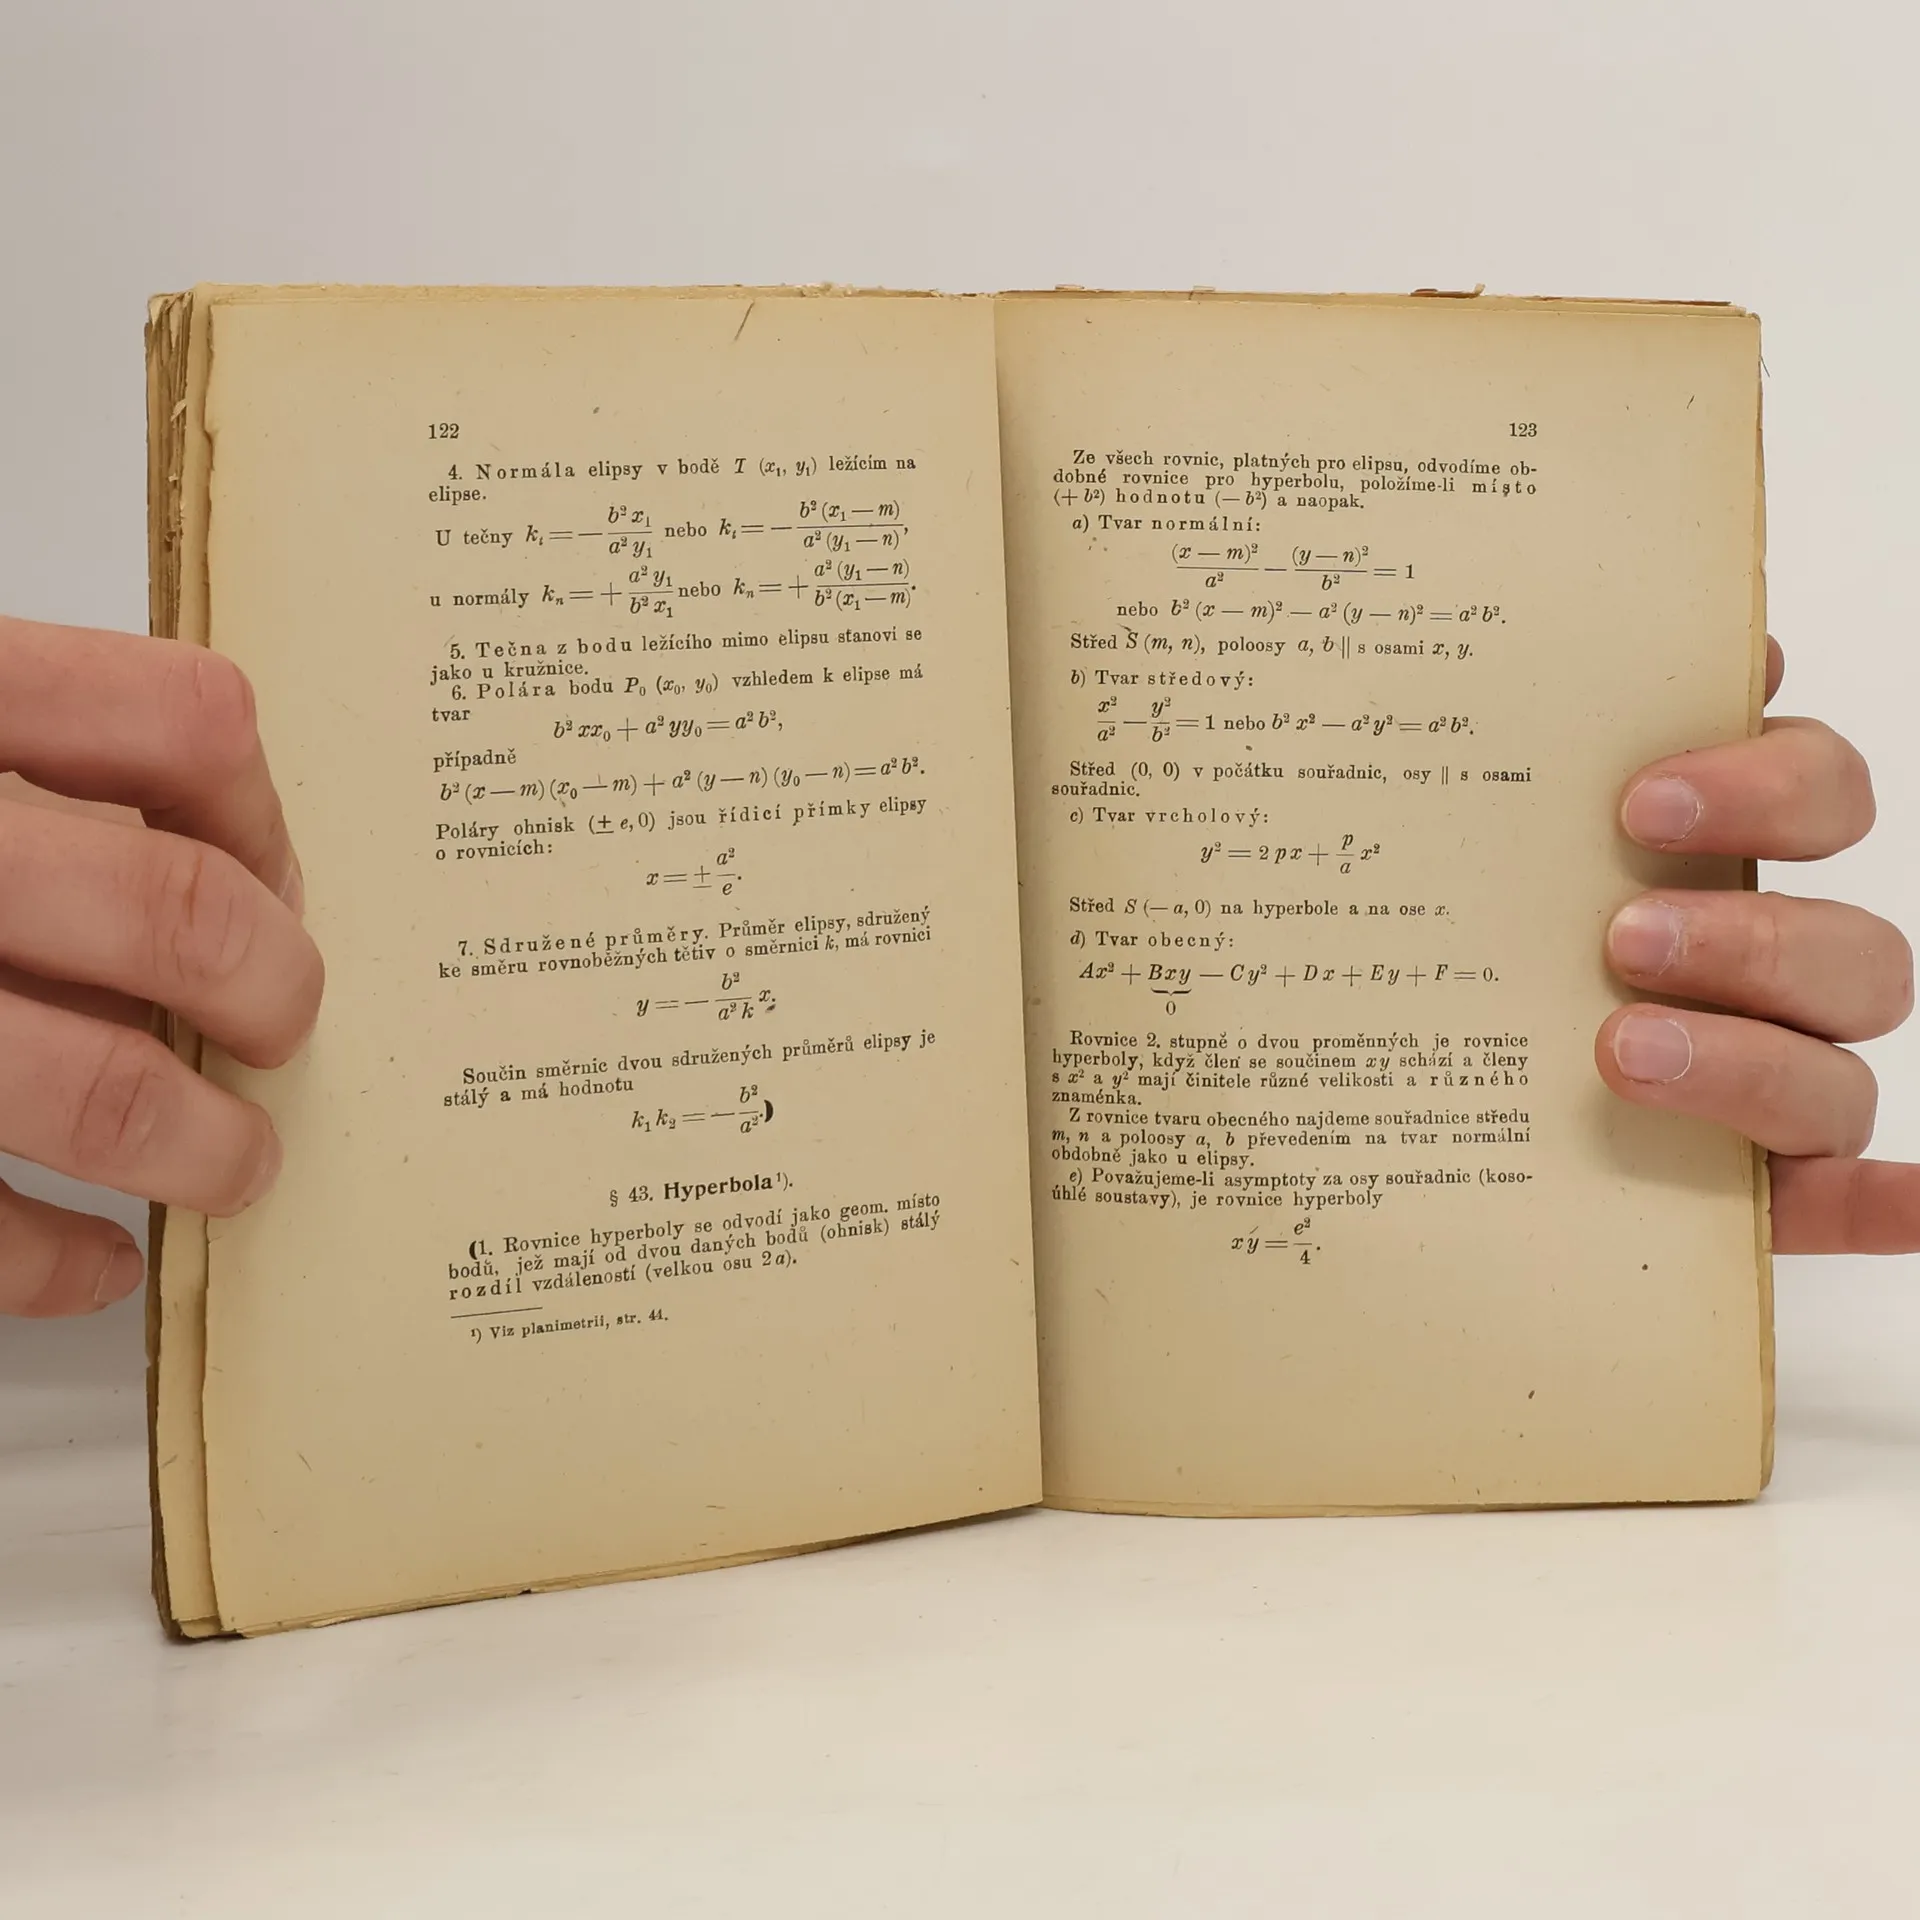 122
4. Normála elipsy v bodě T (x₁, y₁) ležícím na
elipse.
U tečny kₜ = − b² x₁ / a² y₁ nebo kₜ = − b² (x₁ — m) / a² (y₁ — n) ,
u normály kₙ = + a² y₁ / b² x₁ nebo kₙ = + a² (y₁ — n) / b² (x₁ — m) .
5. Tečna z bodu ležícího mimo elipsu stanoví se
jako u kružnice.
6. Polára bodu P₀ (x₀, y₀) vzhledem k elipse má
tvar
b² xx₀ + a² yy₀ = a² b²,
případně
b² (x — m) (x₀ — m) + a² (y — n) (y₀ — n) = a² b².
Poláry ohnisk (± e, 0) jsou řídicí přímky elipsy
o rovnicích:
x = ± a² / e .
7. Sdružené průměry. Průměr elipsy, sdružený
ke směru rovnoběžných tětiv o směrnici k, má rovnici
y = — b² / a² k x.
Součin směrnic dvou sdružených průměrů elipsy je
stálý a má hodnotu
k₁ k₂ = — b² / a² .)
§ 43. Hyperbola ¹).
(1. Rovnice hyperboly se odvodí jako geom. místo
bodů, jež mají od dvou daných bodů (ohnisk) stálý
rozdíl vzdáleností (velkou osu 2 a).
¹) Viz planimetrii, str. 44.
123
Ze všech rovnic, platných pro elipsu, odvodíme ob-
dobné rovnice pro hyperbolu, položíme-li místo
(+ b²) hodnotu (— b²) a naopak.
a) Tvar normální:
(x — m)² / a² — (y — n)² / b² = 1
nebo b² (x — m)² — a² (y — n)² = a² b².
Střed S (m, n), poloosy a, b || s osami x, y.
b) Tvar středový:
x² / a² — y² / b² = 1 nebo b² x² — a² y² = a² b².
Střed (0, 0) v počátku souřadnic, osy || s osami
souřadnic.
c) Tvar vrcholový:
y² = 2 px + p / a x²
Střed S (— a, 0) na hyperbole a na ose x.
d) Tvar obecný:
Ax² + Bxy — Cy² + Dx + Ey + F = 0.
0
Rovnice 2. stupně o dvou proměnných je rovnice
hyperboly, když člen se součinem xy schází a členy
s x² a y² mají činitele různé velikosti a různého
znaménka.
Z rovnice tvaru obecného najdeme souřadnice středu
m, n a poloosy a, b převedením na tvar normální
obdobně jako u elipsy.
e) Považujeme-li asymptoty za osy souřadnic (koso-
úhlé soustavy), je rovnice hyperboly
xy = e² / 4 .